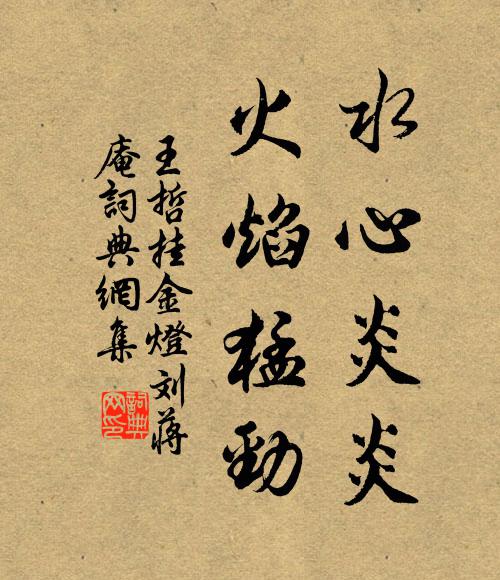 水心炎炎
火焰猛勁
王哲挂金燈刘蒋
庵詞典網集
詞典网印